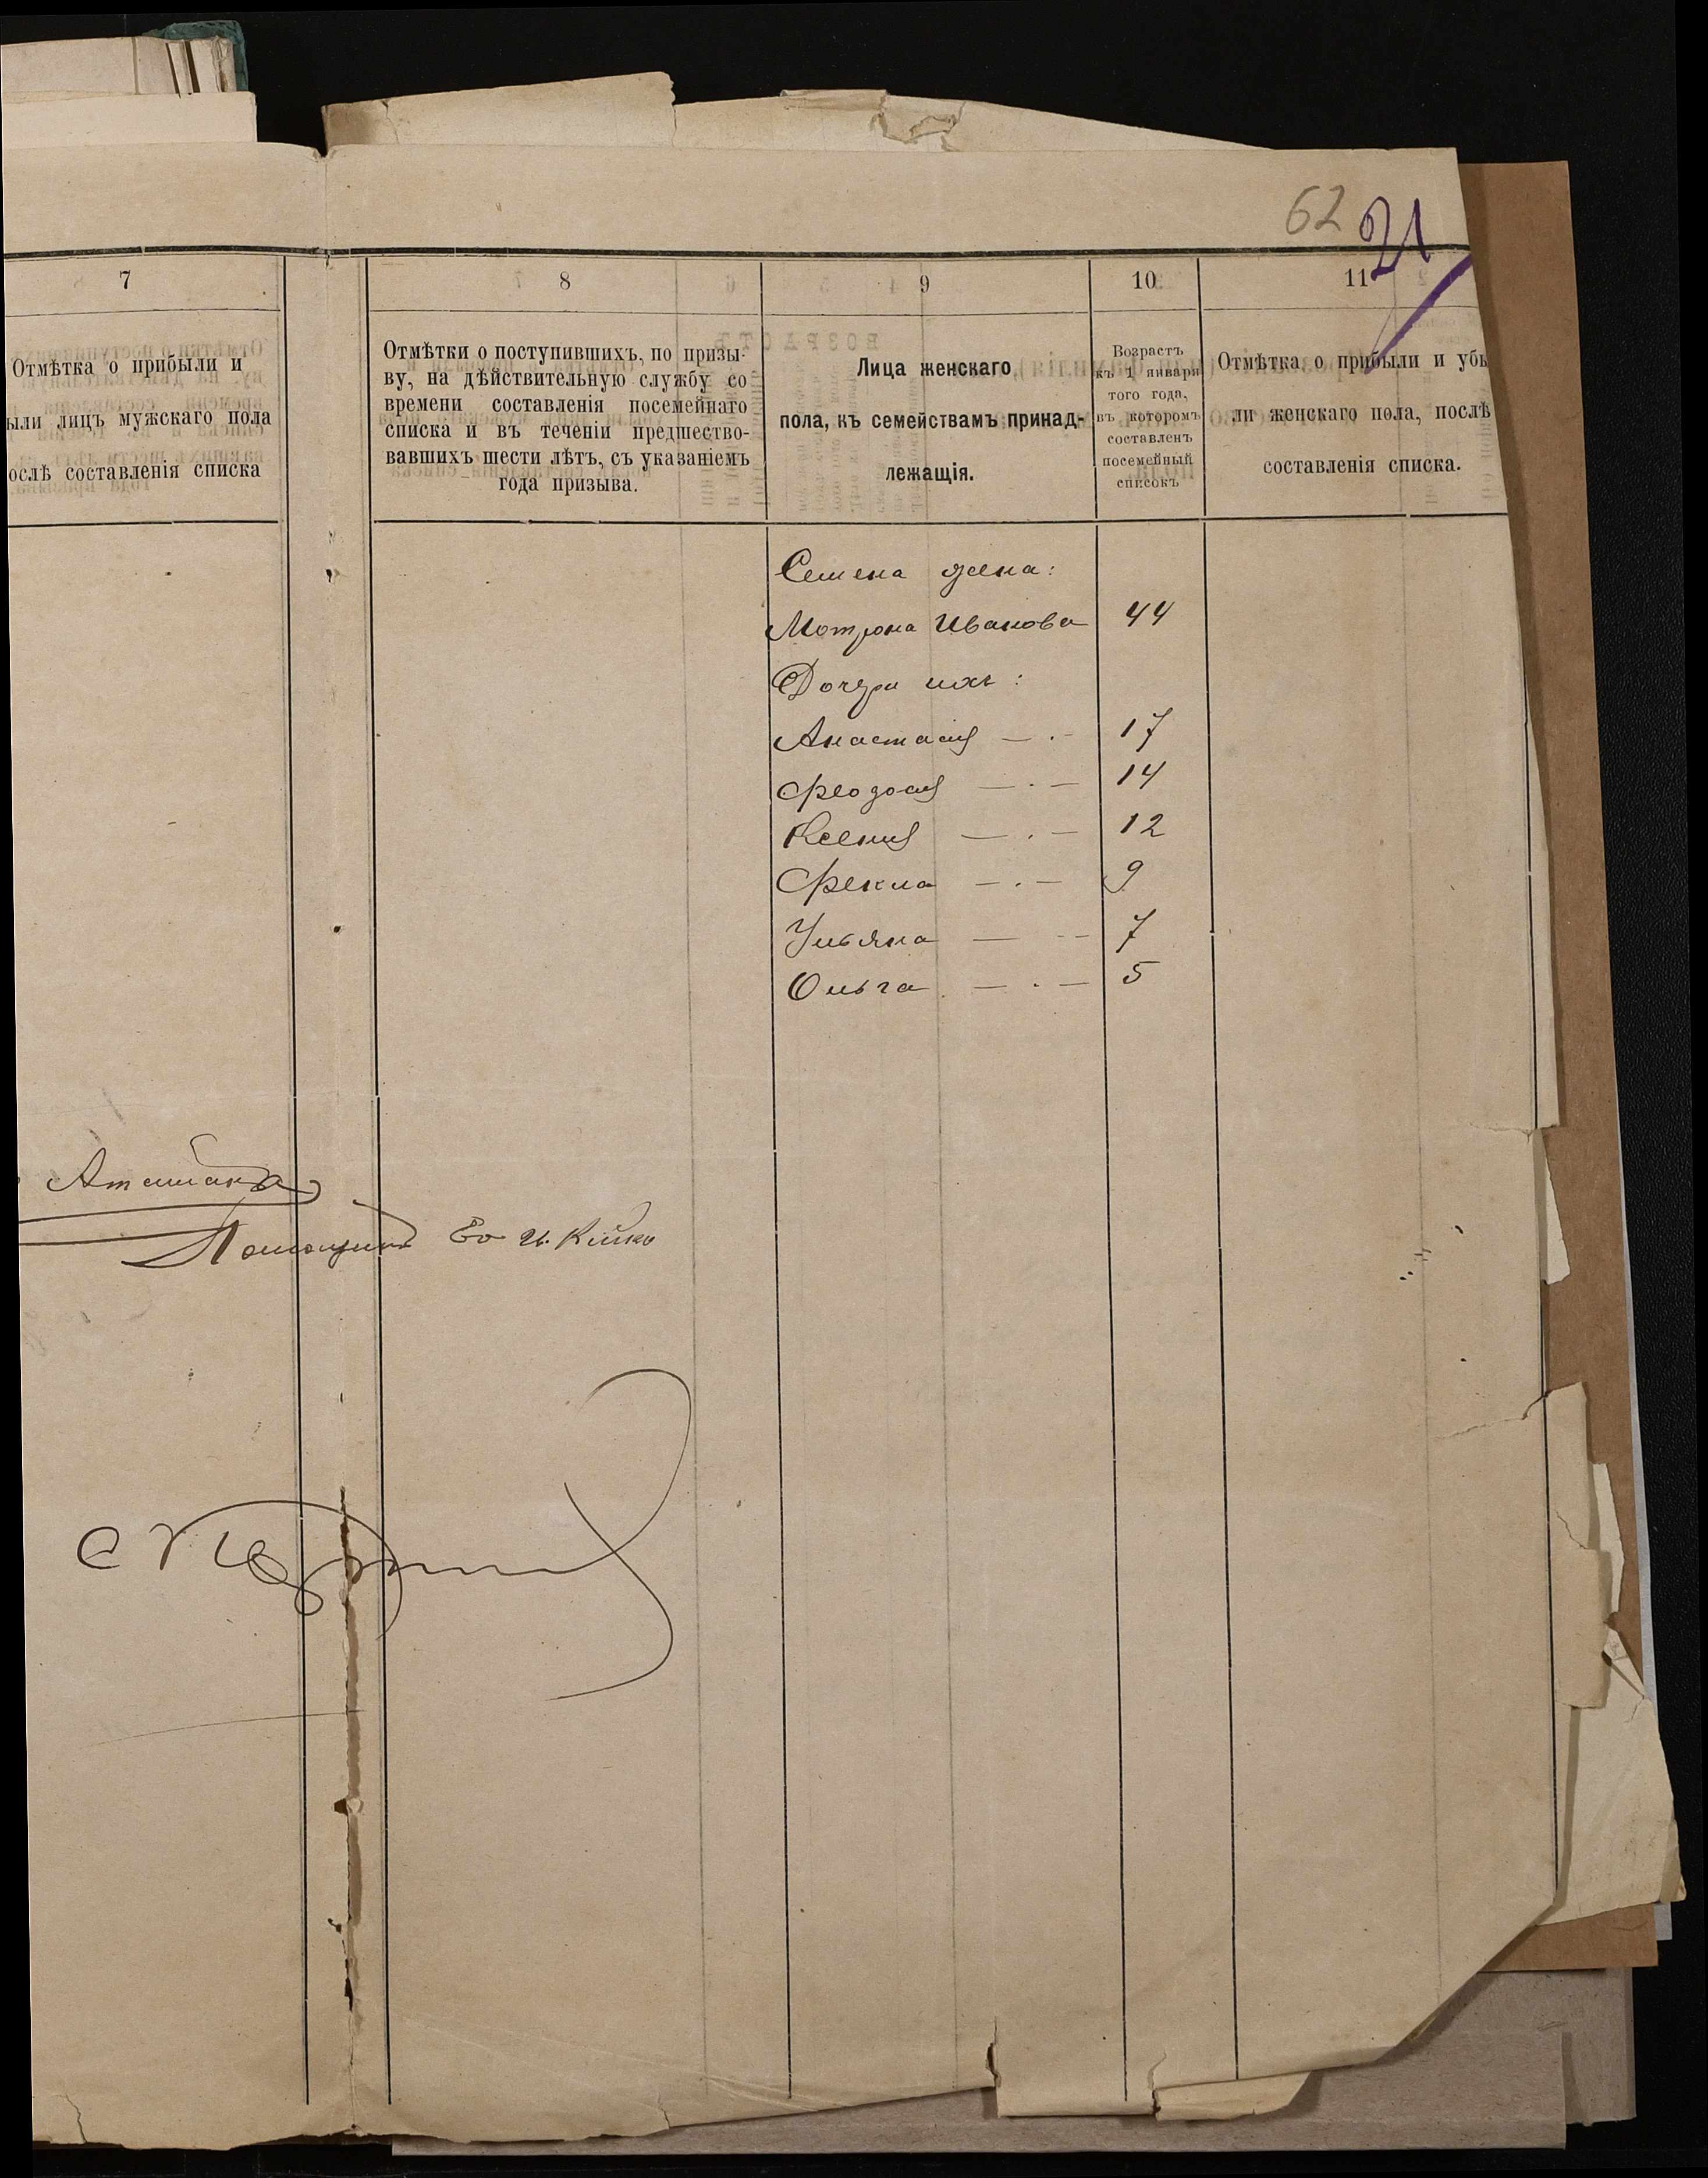 62 21
7
Отмѣтка о прибыли и
ыли лицъ мужскаго пола
ослѣ составленія списка
8
Отмѣтки о поступившихъ, по призы-
ву, на дѣйствительную службу со
времени составленія посемейнаго
списка и въ теченіи предшество-
вавшихъ шести лѣтъ, съ указаніемъ
года призыва.
9
Лица женскаго
пола, къ семействамъ принад-
лежащія.
10
Возрастъ
къ 1 января
того года,
въ которомъ
составленъ
посемейный
списокъ
11
Отмѣтка о прибыли и убы
ли женскаго пола, послѣ
составленія списка.
Семена жена:
Мотрона Иванова 44
Дочери ихъ:
Анастасія — . — 17
Феодосія — . — 14
Ксенія — . — 12
Фекла — . — 9
Ульяна — — 7
Ольга — . — 5
Атамана
Помощникъ Ео И. Кійко